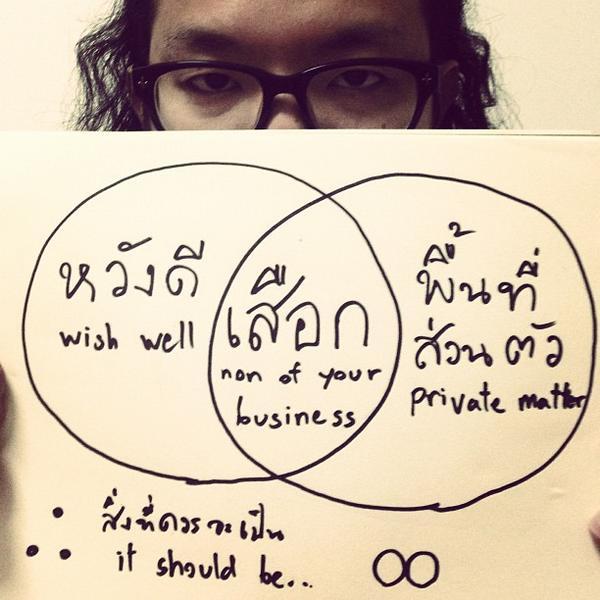 หวังดี
wish well
เสือก
non of your
business
พื้นที่
ส่วนตัว
private matter
∴ สิ่งที่ควรจะเป็น
it should be...